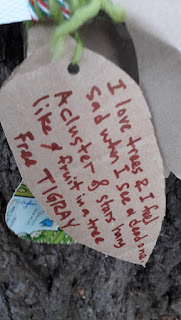 I love trees & I feel
sad when I see a dead one
A cluster of stars hung
like a fruit in a tree
Free TIGRAY